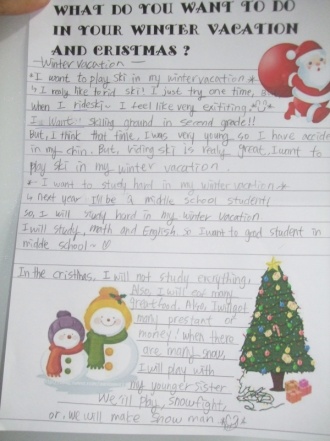 WHAT DO YOU WANT TO DO
IN YOUR WINTER VACATION
AND CRISTMAS ?
Winter vacation
I want to play ski in my winter vacation
I realy like to rid ski! I just try one time,
when I ride ski~ I feel like very exitiring.
I Want skiing ground in second grade!!
But, I think that time, I was very young, so I have accident
in my chin. But, riding ski is realy great. I want to
play ski in my winter vacation.
I want to study hard in my winter vacation
next year I'll be a middle school student!
so, I will study hard in my winter vacation
I will study, math and English. so I want to good student in
midde school~
In the cristmas, I will not study everything,
Also I will eat many
great food. Also, I will got
many prestant or
money! when there
are many snow,
I will play with
my younger sister
We'ill play, snowfight,
or, we will make snow man